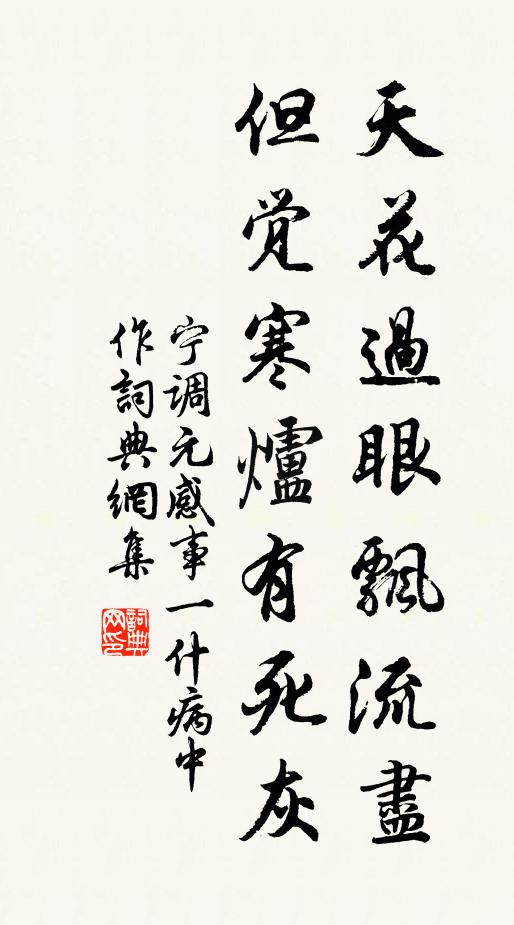 天花過眼飄流盡
但觉寒爐有死灰
宁调元感事一什病中
作詞典網集
詞典
网印